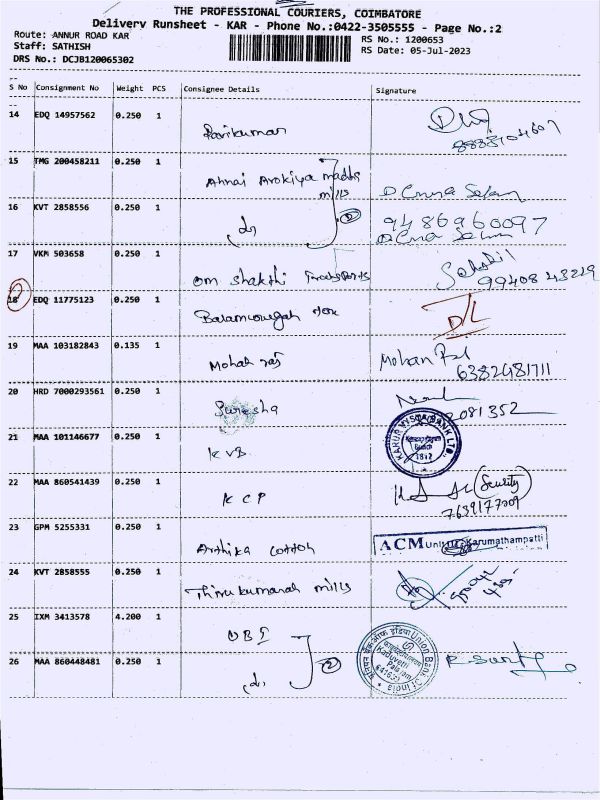 THE PROFESSIONAL COURIERS, COIMBATORE
Delivery Runsheet - KAR - Phone No.:0422-3505555 - Page No.:2
Route: ANNUR ROAD KAR
RS No.: 1200653
Staff: SATHISH
RS Date: 05-Jul-2023
DRS No.: DCJB120065302
S No Consignment No Weight PCS Consignee Details Signature
14 EDQ 14957562 0.250 1
Ravikumar
15 TMG 200458211 0.250 1
Annai Arokiya madha mills
16 KVT 2858556 0.250 1
do 2
9486960097
17 VKM 503658 0.250 1
om shakthi Transports
9940843229
18 EDQ 11775123 0.250 1
D/L
19 MAA 103182843 0.135 1
Mohan raj
Mohan
6382481711
20 HRD 7000293561 0.250 1
Suresha
081352
21 MAA 101146677 0.250 1
KVB
KARUR VYSYA BANK LTD.
22 MAA 860541439 0.250 1
K C P
(Security)
23 GPM 5255331 0.250 1
Arthika cotton
ACM Unit Karumathampatti
24 KVT 2858555 0.250 1
Thirukumaran mills
25 IXM 3413578 4.200 1
UBI
यूनियन बैंक ऑफ इंडिया Union Bank of India
Kaduvetti
Palayam
26 MAA 860448481 0.250 1
do 2